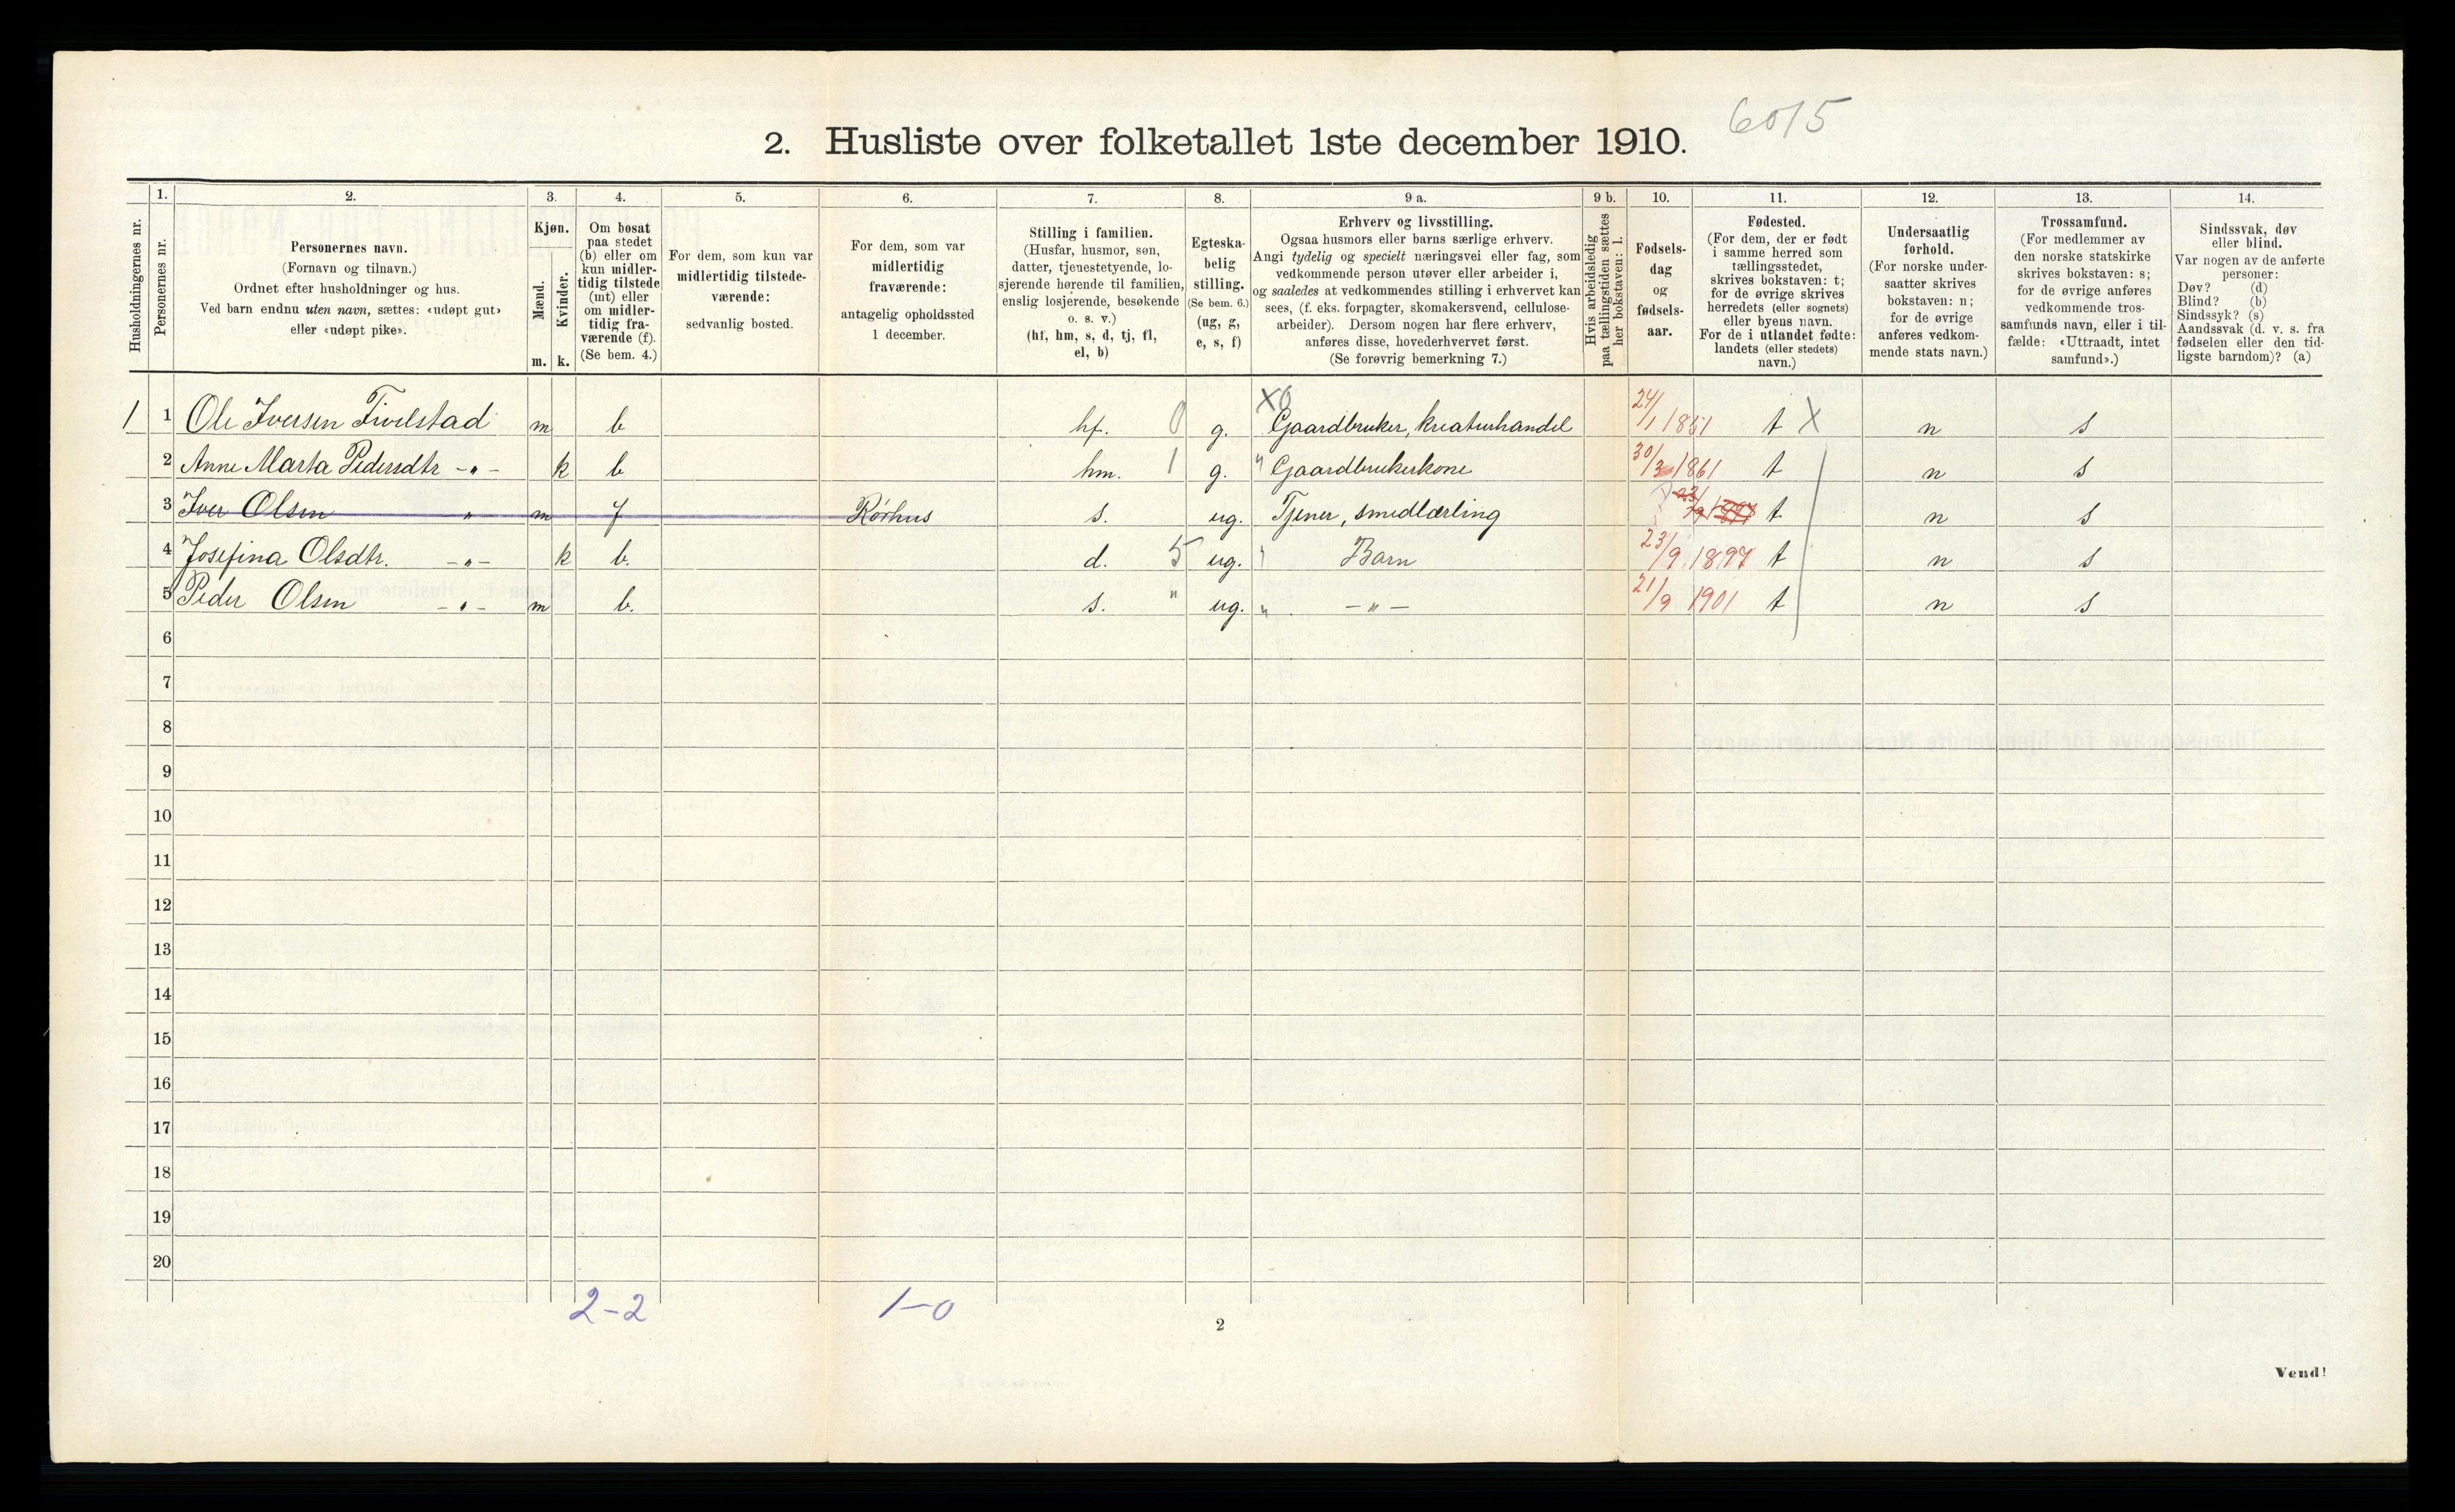 6015
2. Husliste over folketallet 1ste december 1910.
Husholdningernes nr.
1.
Personernes nr.
2.
Personernes navn.
(Fornavn og tilnavn.)
Ordnet efter husholdninger og hus.
Ved barn endnu uten navn, sættes: «udøpt gut»
eller «udøpt pike».
3.
Kjøn.
Mænd.
Kvinder.
m. k.
4.
Om bosat
paa stedet
(b) eller om
kun midler-
tidig tilstede
(mt) eller
om midler-
tidig fra-
værende (f).
(Se bem. 4.)
5.
For dem, som kun var
midlertidig tilstede-
værende:
sedvanlig bosted.
6.
For dem, som var
midlertidig
fraværende:
antagelig opholdssted
1 december.
7.
Stilling i familien.
(Husfar, husmor, søn,
datter, tjenestetyende, lo-
sjerende hørende til familien,
enslig losjerende, besøkende
o. s. v.)
(hf, hm, s, d, tj, fl,
el, b)
8.
Egteska-
belig
stilling.
(Se bem. 6.)
(ug, g,
e, s, f)
9 a.
Erhverv og livsstilling.
Ogsaa husmors eller barns særlige erhverv.
Angi tydelig og specielt næringsvei eller fag, som
vedkommende person utøver eller arbeider i,
og saaledes at vedkommendes stilling i erhvervet kan
sees, (f. eks. forpagter, skomakersvend, cellulose-
arbeider). Dersom nogen har flere erhverv,
anføres disse, hovederhvervet først.
(Se forøvrig bemerkning 7.)
9 b.
Hvis arbeidsledig
paa tællingstiden sættes
her bokstaven: l.
10.
Fødsels-
dag
og
fødsels-
aar.
11.
Fødested.
(For dem, der er født
i samme herred som
tællingsstedet,
skrives bokstaven: t;
for de øvrige skrives
herredets (eller sognets)
eller byens navn.
For de i utlandet fødte:
landets (eller stedets)
navn.)
12.
Undersaatlig
forhold.
(For norske under-
saatter skrives
bokstaven: n;
for de øvrige
anføres vedkom-
mende stats navn.)
13.
Trossamfund.
(For medlemmer av
den norske statskirke
skrives bokstaven: s;
for de øvrige anføres
vedkommende tros-
samfunds navn, eller i til-
fælde: «Uttraadt, intet
samfund».)
14.
Sindssvak, døv
eller blind.
Var nogen av de anførte
personer:
Døv? (d)
Blind? (b)
Sindssyk? (s)
Aandssvak (d. v. s. fra
fødselen eller den tid-
ligste barndom)? (a)
1 1 Ole Iversen Tivilstad m b hf. 0 g. X0 Gaardbruker, kreaturhandel 24/1 1851 t X n s
2 Anne Marta Pedersdtr -„- k b hm. 1 g. " Gaardbrukerkone 30/3 1861 t n s
3 Iver Olsen „ m f Rørhus s. ug. Tjener, smedlærling t n s
4 Josefina Olsdtr. -„- k b. d. 5 ug. " Barn 23/9 1897 t n s
5 Peder Olsen -„- m b. s. " ug. " -„- 21/9 1901 t n s
6
7
8
9
10
11
12
13
14
15
16
17
18
19
20
2-2 1-0
2
Vend!